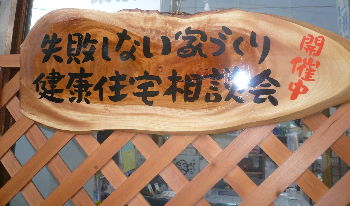 失敗しない家づくり
健康住宅相談会
開催中